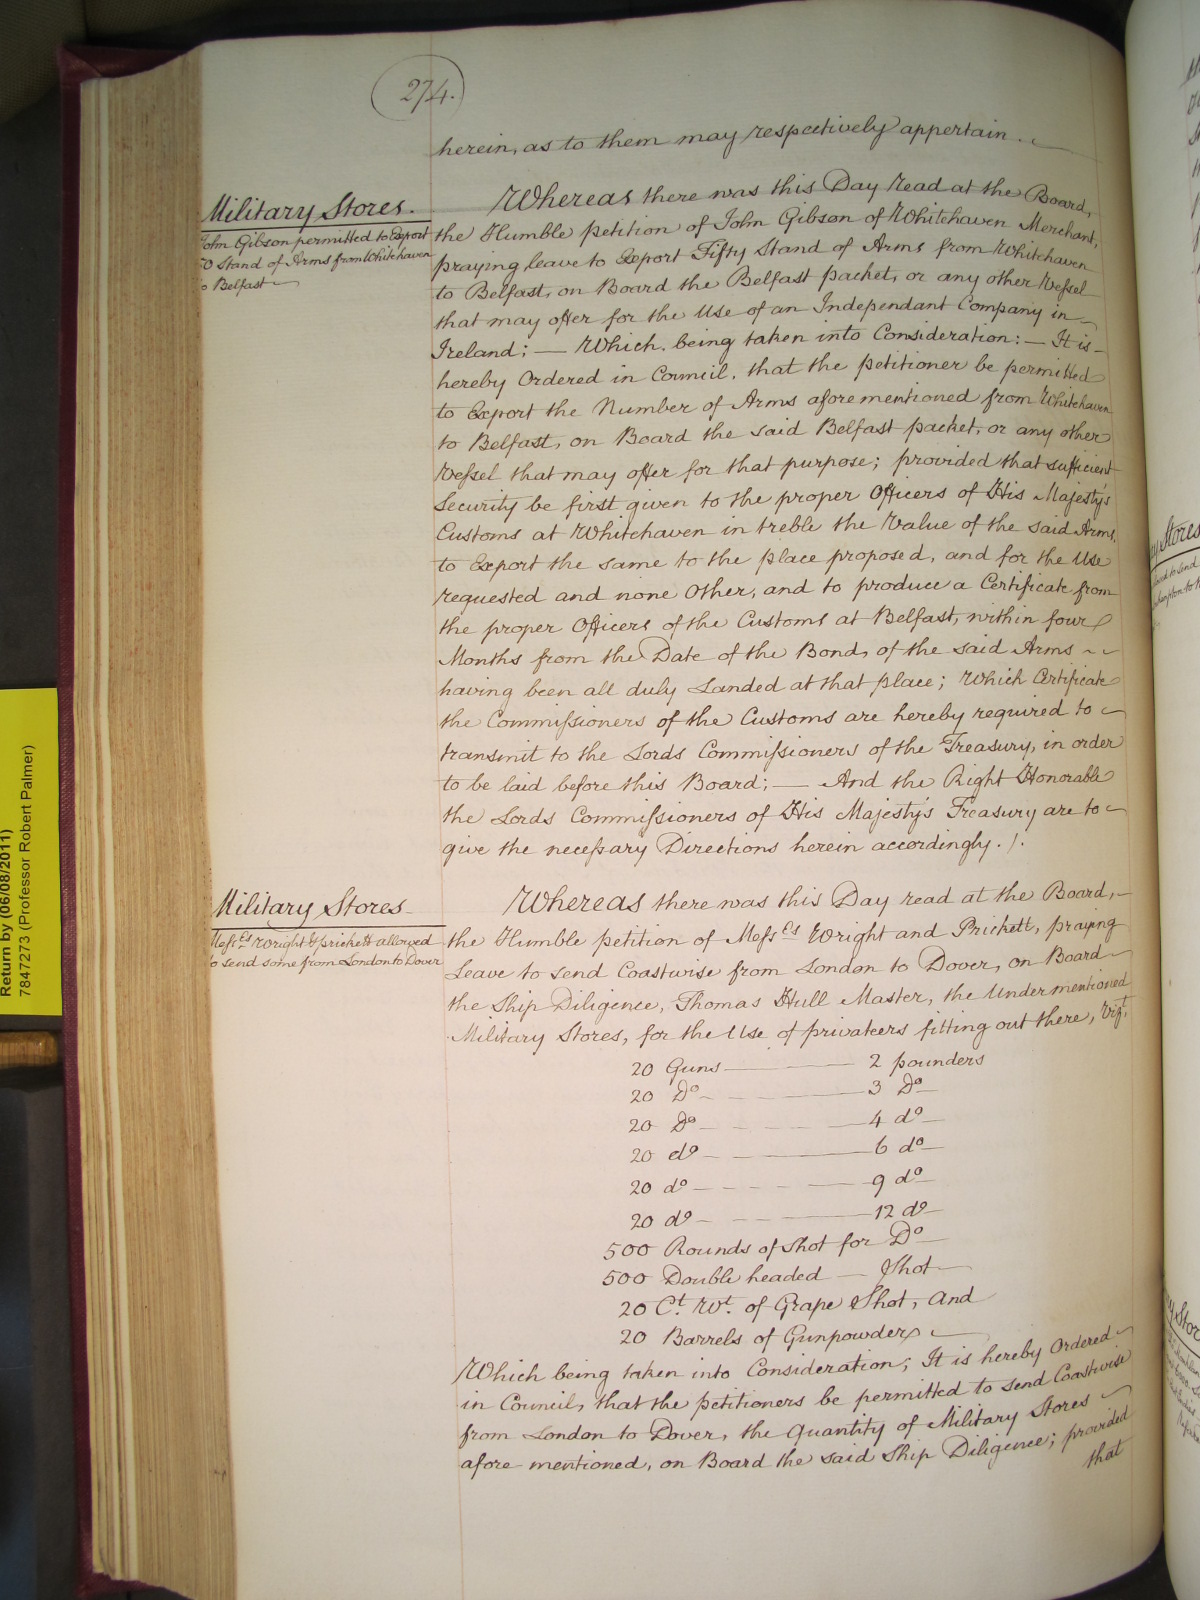 274.
herein, as to them may respectively appertain.
Military Stores.
John Gibson permitted to Export
50 Stand of Arms from Whitehaven
to Belfast
Whereas there was this Day Read at the Board,
the Humble petition of John Gibson of Whitehaven Merchant,
praying leave to Export Fifty Stand of Arms from Whitehaven
to Belfast, on Board the Belfast packet, or any other Vessel
that may offer for the Use of an Independant Company in
Ireland; — Which being taken into Consideration: — It is
hereby Ordered in Council, that the petitioner be permitted
to Export the Number of Arms aforementioned from Whitehaven
to Belfast, on Board the said Belfast packet, or any other
Vessel that may offer for that purpose; provided that sufficient
Security be first given to the proper Officers of His Majesty's
Customs at Whitehaven in treble the Value of the said Arms,
to Export the same to the place proposed, and for the Use
requested and none Other, and to produce a Certificate from
the proper Officers of the Customs at Belfast, within four
Months from the Date of the Bond, of the said Arms
having been all duly Landed at that place; Which Certificate
the Commissioners of the Customs are hereby required to
transmit to the Lords Commissioners of the Treasury, in order
to be laid before this Board; — And the Right Honorable
the Lords Commissioners of His Majesty's Treasury are to
give the necessary Directions herein accordingly. /.
Military Stores
Messrs Wright & prickett allowed
to send some from London to Dover
Whereas there was this Day read at the Board,
the Humble petition of Messrs Wright and Prickett, praying
Leave to send Coastwise from London to Dover, on Board
the Ship Diligence, Thomas Hull Master, the Undermentioned
Military Stores, for the Use of privateers fitting out there, Vizt.
20 Guns — 2 pounders
20 Do — 3 Do
20 Do — 4 do
20 do — 6 do
20 do — 9 do
20 do — 12 do
500 Rounds of Shot for Do
500 Double headed — Shot
20 Ct. Wt. of Grape Shot, And
20 Barrels of Gunpowder
Which being taken into Consideration; It is hereby Ordered
in Council, that the petitioners be permitted to send Coastwise
from London to Dover, the Quantity of Military Stores
afore mentioned, on Board the said Ship Diligence; provided
that
Return by (06/08/2011)
7847273 (Professor Robert Palmer)